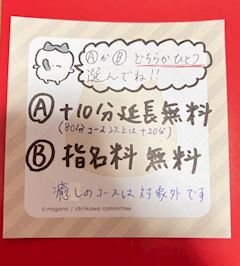 Ⓐか Ⓑ どちらかひとつ
選んでね!!
Ⓐ +10分延長無料
(80分コース以上は+20分)
Ⓑ 指名料 無料
癒しのコースは対象外です
© nagano / chiikawa committee